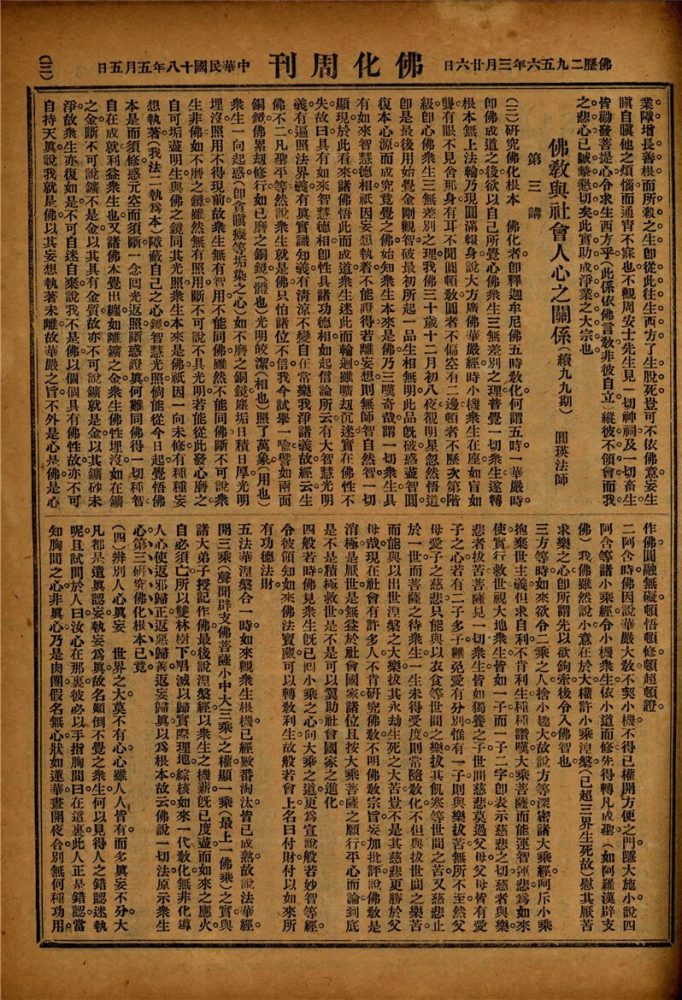 佛歷二九五六年三月廿六日
佛化周刊
中華民國十八年五月五日
(三)
業障增長善根而所殺之生卽從此往生西方了生脫死豈可不依佛意妄生
瞋自瞋他之煩惱而通宵不寐也不觀周安士先生見一切神祠及一切畜生
皆勸發菩提心令求生西方乎此係依佛言敎非彼自立縱彼不領會而我
之悲心已誠摯懇切矣此實助成淨業之大宗也
佛敎與社會人心之關係(續九九期) 圓瑛法師
第三講
(三)研究佛化根本 佛化者卽釋迦牟尼佛五時敎化何謂五時一華嚴時
卽佛成道之後欲以自己所覺心佛衆生三無差別之理普覺一切衆生遂轉
根本無上法輪乃現圓滿報身說大方廣佛華嚴經時小機衆生在座如盲如
聾有眼不見舍那身有耳不聞圓頓敎圓者不偏空有二邊頓者不歷次第階
級卽心佛衆生三無差別之理我佛三十歲十二月初八夜覩明星忽然悟道
卽是最後用始覺金剛觀智破最初所起一品生相無明此品旣破惑盡智圓
復本心源而成究竟覺之佛始知衆生本來是佛乃三嘆奇哉謂一切衆生具
有如來智慧德相祇因妄想執着不能證得若離妄想則無師智自然智一切
顯現於此看來諸佛悟此而成道衆生迷此而輪迴雖曠刼沉迷實在佛性不
失故曰具有如來智慧德相卽性具諸功德相如起信論所云有大智慧光明
義有遍照法界義有眞實識知義有淸涼不變自在常樂我淨諸義故經云生
佛不二凡聖平等然說衆生就是佛只怕諸位不信我今試舉一喩譬如兩面
銅鏡佛累刼修行如已磨之銅鏡(體也)光明皎潔(相也)照了萬象(用也)
衆生一向起惑(卽貪瞋癡等垢染之心)如不磨之銅鏡塵垢日積日厚光明
埋沒照用不得現前故衆生無有智用不能同佛雖然不能同佛斷不可說衆
生非佛如不磨之鏡雖然無有照用斷不可說不具光明若能從此發心磨之
自可垢盡明生與佛之鏡同其光照衆生本來是佛祇因一向未修有種種妄
想執著(我法二執爲本)障蔽自己之心鏡智慧光照倘能從今日起覺悟佛
本是而須修惑元空而須斷一念囘光返照斷惑證眞何難同佛得一切種智
自在成就利益衆生也又諸佛本覺出纏如離鑛之金衆生佛性埋沒如在鑛
之金斷不可說鑛不是金以其具有金質故亦不可說鑛就是金以其鑛砂未
淨故衆生亦復如是不可自迷自棄說我不是佛以個個具有佛性故亦不可
自持天眞說我就是佛以其妄想執著未離故華嚴之旨不外是心是佛是心
作佛圓融無礙頓悟頓修頓超頓證
二阿含時佛因說華嚴大敎不契小機不得已權開方便之門隱大施小說四
阿含等諸小乘經令小機衆生依小道而修先得轉凡成聖(如阿羅漢辟支
佛)我佛雖然說小意在於大權許小乘湼槃(已超三界生死故)慰其厭苦
求樂之心卽所謂先以欲鉤牽後令入佛智也
三方等時如來欲令二乘之人捨小慕大故說方等深密諸大乘經呵斥小乘
抱棄世主義但求自利不肯利生種種讚嘆大乘菩薩而能運智運悲爲如來
使實行救世視大地衆生皆如一子而一子二字卽表示慈悲之切慈者與樂
悲者拔苦菩薩見一切衆生皆如獨養之子世間慈悲莫過父母父母皆有愛
子之心若有二子多子難免愛有分別惟有一子則與樂拔苦無所不至然父
母愛子之慈悲只能與以衣食等世間之樂拔其飢寒等世間之苦又慈悲止
於一世而菩薩之待衆生一生未得受度則常隨敎化不但與拔世間之樂苦
而能與以出世湼槃之大樂拔其永劫生死之大苦豈不是其慈悲更勝於父
母哉現在社會有許多人不肯研究佛敎不明佛敎宗旨妄加批評說佛敎是
消極是厭世是無益於社會國家諸位且按大乘菩薩之願行平心而論到底
是不是積極救世是不是可以翼助社會國家之進化
四般若時佛見衆生旣已囘小乘之心向大乘之道更爲宣說般若妙智等經
令彼領知如來佛法寶藏可以轉敎利生故般若會上名曰付財付以如來所
有功德法財
五法華湼槃合一時如來觀衆生根機已經數番淘汰皆已成熟故說法華經
開三乘(聲聞辟支佛菩薩小中大三乘)之權顯一乘(最上一佛乘)之實與
諸大弟子授記作佛最後說湼槃經以衆生之機薪旣已度盡而如來之應火
自必須亡所以雙林樹下唱滅以歸實際理地綜核如來一代敎化無非化導
人心使返邪歸正返惡歸善返妄歸眞以爲根本故云佛說一切法原示衆生
心第三研究佛化根本已竟
(四)辨別人心眞妄 世界之大莫不有心心雖人人皆有而多眞妄不分大
凡都是遺眞認妄執妄爲眞故名顚倒不覺之衆生何以見得人之錯認迷執
呢且試問於人曰汝心在那裏彼必以手指胸間曰在這裏此人正是錯認當
知胸間之心非眞心乃是肉團假名無心狀如蓮華晝開夜合別無何種功用